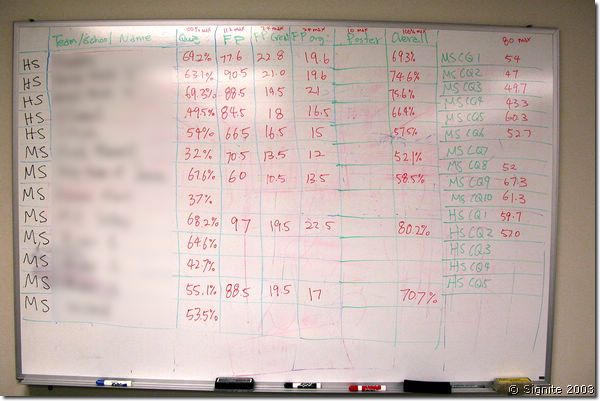 100% max 112 max 24 max 24 max 10 max 100% max 80 max
Team/School Name Quiz FP FP Creat FP org Poster Overall
HS 69.2% 77.6 22.8 19.6 69.3% MS CQ1 54
HS 63.1% 90.5 21.0 19.6 74.6% MS CQ2 47
HS 69.3% 88.5 19.5 21 75.6% MS CQ3 49.7
HS 49.5% 84.5 18 16.5 66.9% MS CQ4 43.3
HS 54% 66.5 16.5 15 57.5% MS CQ5 60.3
MS 32% 70.5 13.5 12 52.1% MS CQ6 52.7
MS 67.6% 60 10.5 13.5 58.5% MS CQ7
MS 37% MS CQ8 52
MS 68.2% 97 19.5 22.5 80.2% MS CQ9 67.3
MS 64.6% MS CQ10 61.3
MS 42.7% HS CQ1 59.7
MS 55.1% 88.5 19.5 17 70.7% HS CQ2 52.0
MS 53.5% HS CQ3
HS CQ4
HS CQ5
© Signite 2003